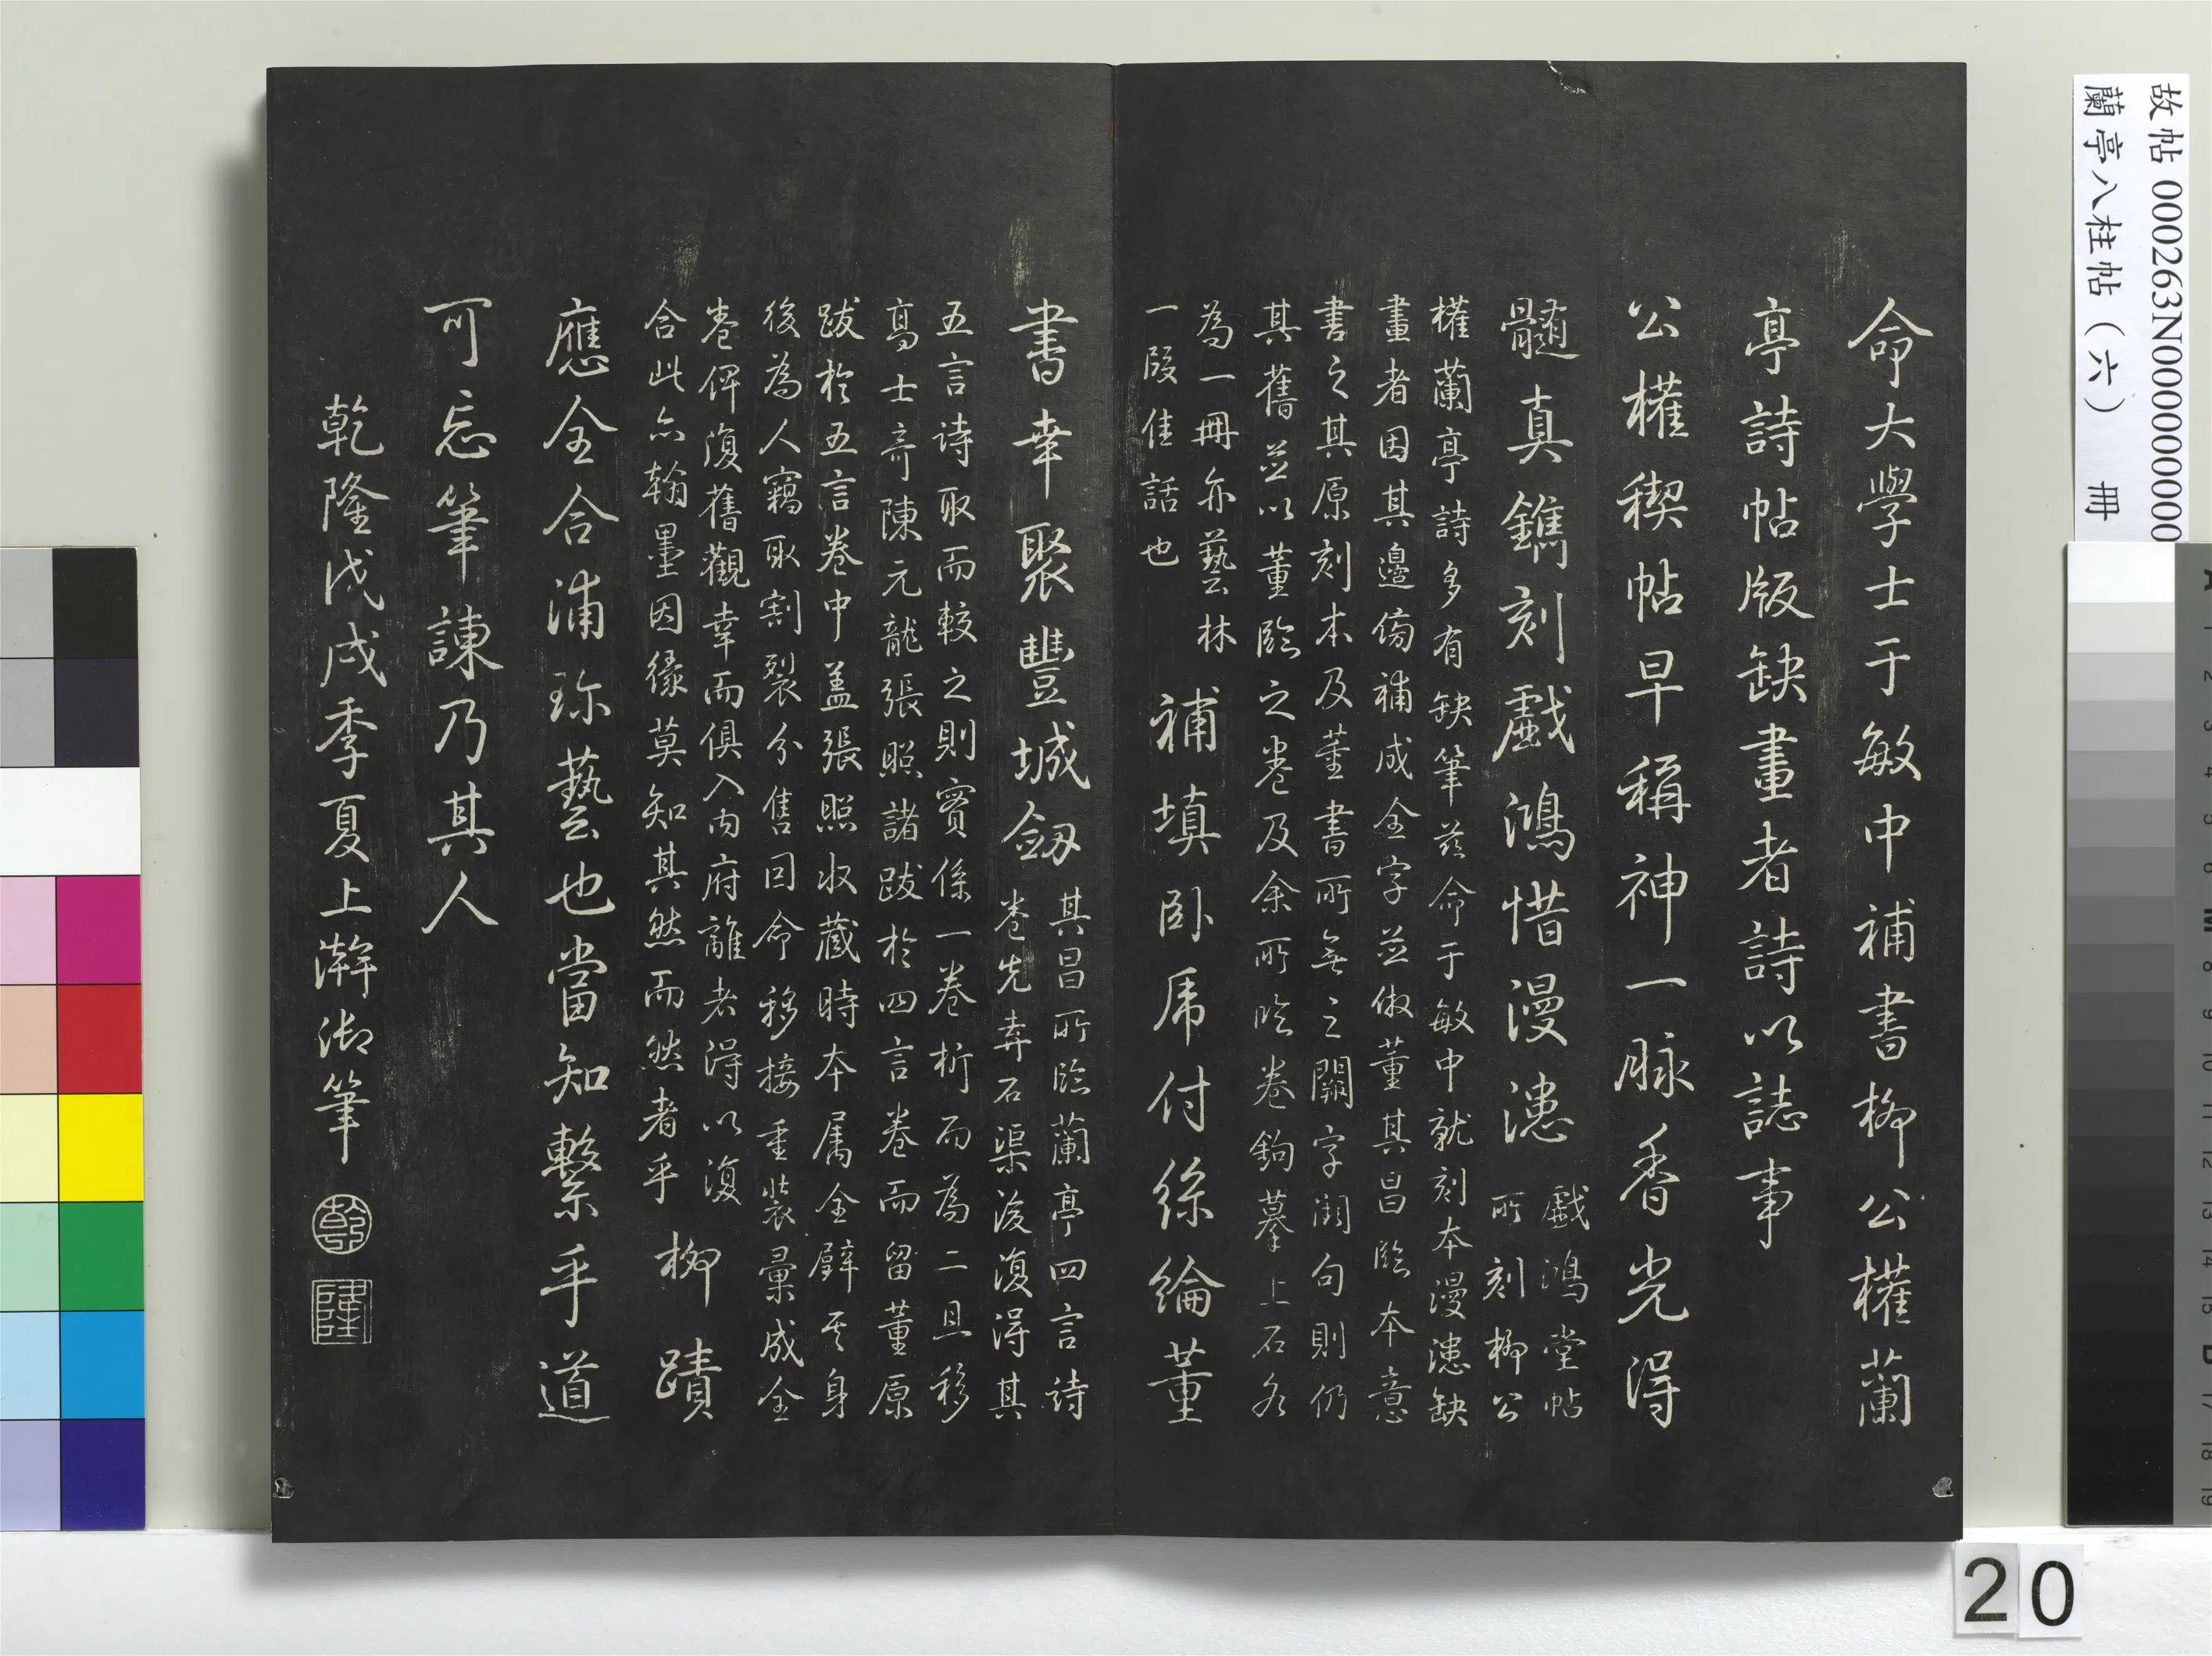 命大學士于敏中補書柳公權蘭
亭詩帖版缺畫者詩以誌事
公權稧帖早稱神一脉香光得
髓真鐫刻戲鴻惜漫漶
戲鴻堂帖
所刻柳公
權蘭亭詩多有缺筆茲命于敏中就刻本漫漶缺
畫者因其邊傍補成全字並倣董其昌臨本意
書之其原刻本及董書所無之闕字闕句則仍
其舊並以董臨之卷及余所臨卷鉤摹上石各
為一冊亦藝林
一段佳話也
補填卧虎付絲綸董
書幸聚豐城劔
其昌所臨蘭亭四言詩
卷先弆石渠後復得其
五言诗取而較之則實係一卷析而為二且移
高士奇陳元龍張照諸跋於四言卷而留董原
跋於五言卷中盖張照收藏時本属全璧其身
後為人竊取割裂分售因命移接重裝彙成全
卷俾復舊觀幸而俱入内府離者得以復
合此亦翰墨因緣莫知其然而然者乎
柳蹟
應全合浦珍藝也當知繫乎道
可忘筆諫乃其人
乾隆戊戌季夏上澣御筆
乾
隆
故帖 000263N000000000
蘭亭八柱帖（六） 冊
20